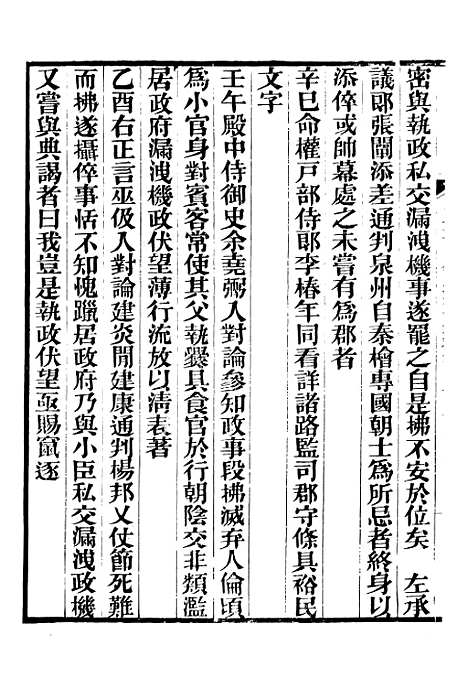 密與執政私交漏洩機事遂罷之自是拂不安於位矣　左承
議郎張闡添差通判泉州自秦檜專國朝士爲所忌者終身以
添倅或帥幕處之未嘗有爲郡者
辛巳命權戸部侍郎李椿年同看詳諸路監司郡守條具裕民
文字
壬午殿中侍御史余堯弼入對論參知政事段拂滅弃人倫頃
爲小官身對賓客常使其父執爨具食官於行朝陰交非類濫
居政府漏洩機政伏望薄行流放以清表著
乙酉右正言巫伋入對論建炎閒建康通判楊邦乂仗節死難
而拂遂攝倅事恬不知愧躐居政府乃與小臣私交漏洩政機
又嘗與典謁者曰我豈是執政伏望亟賜竄逐